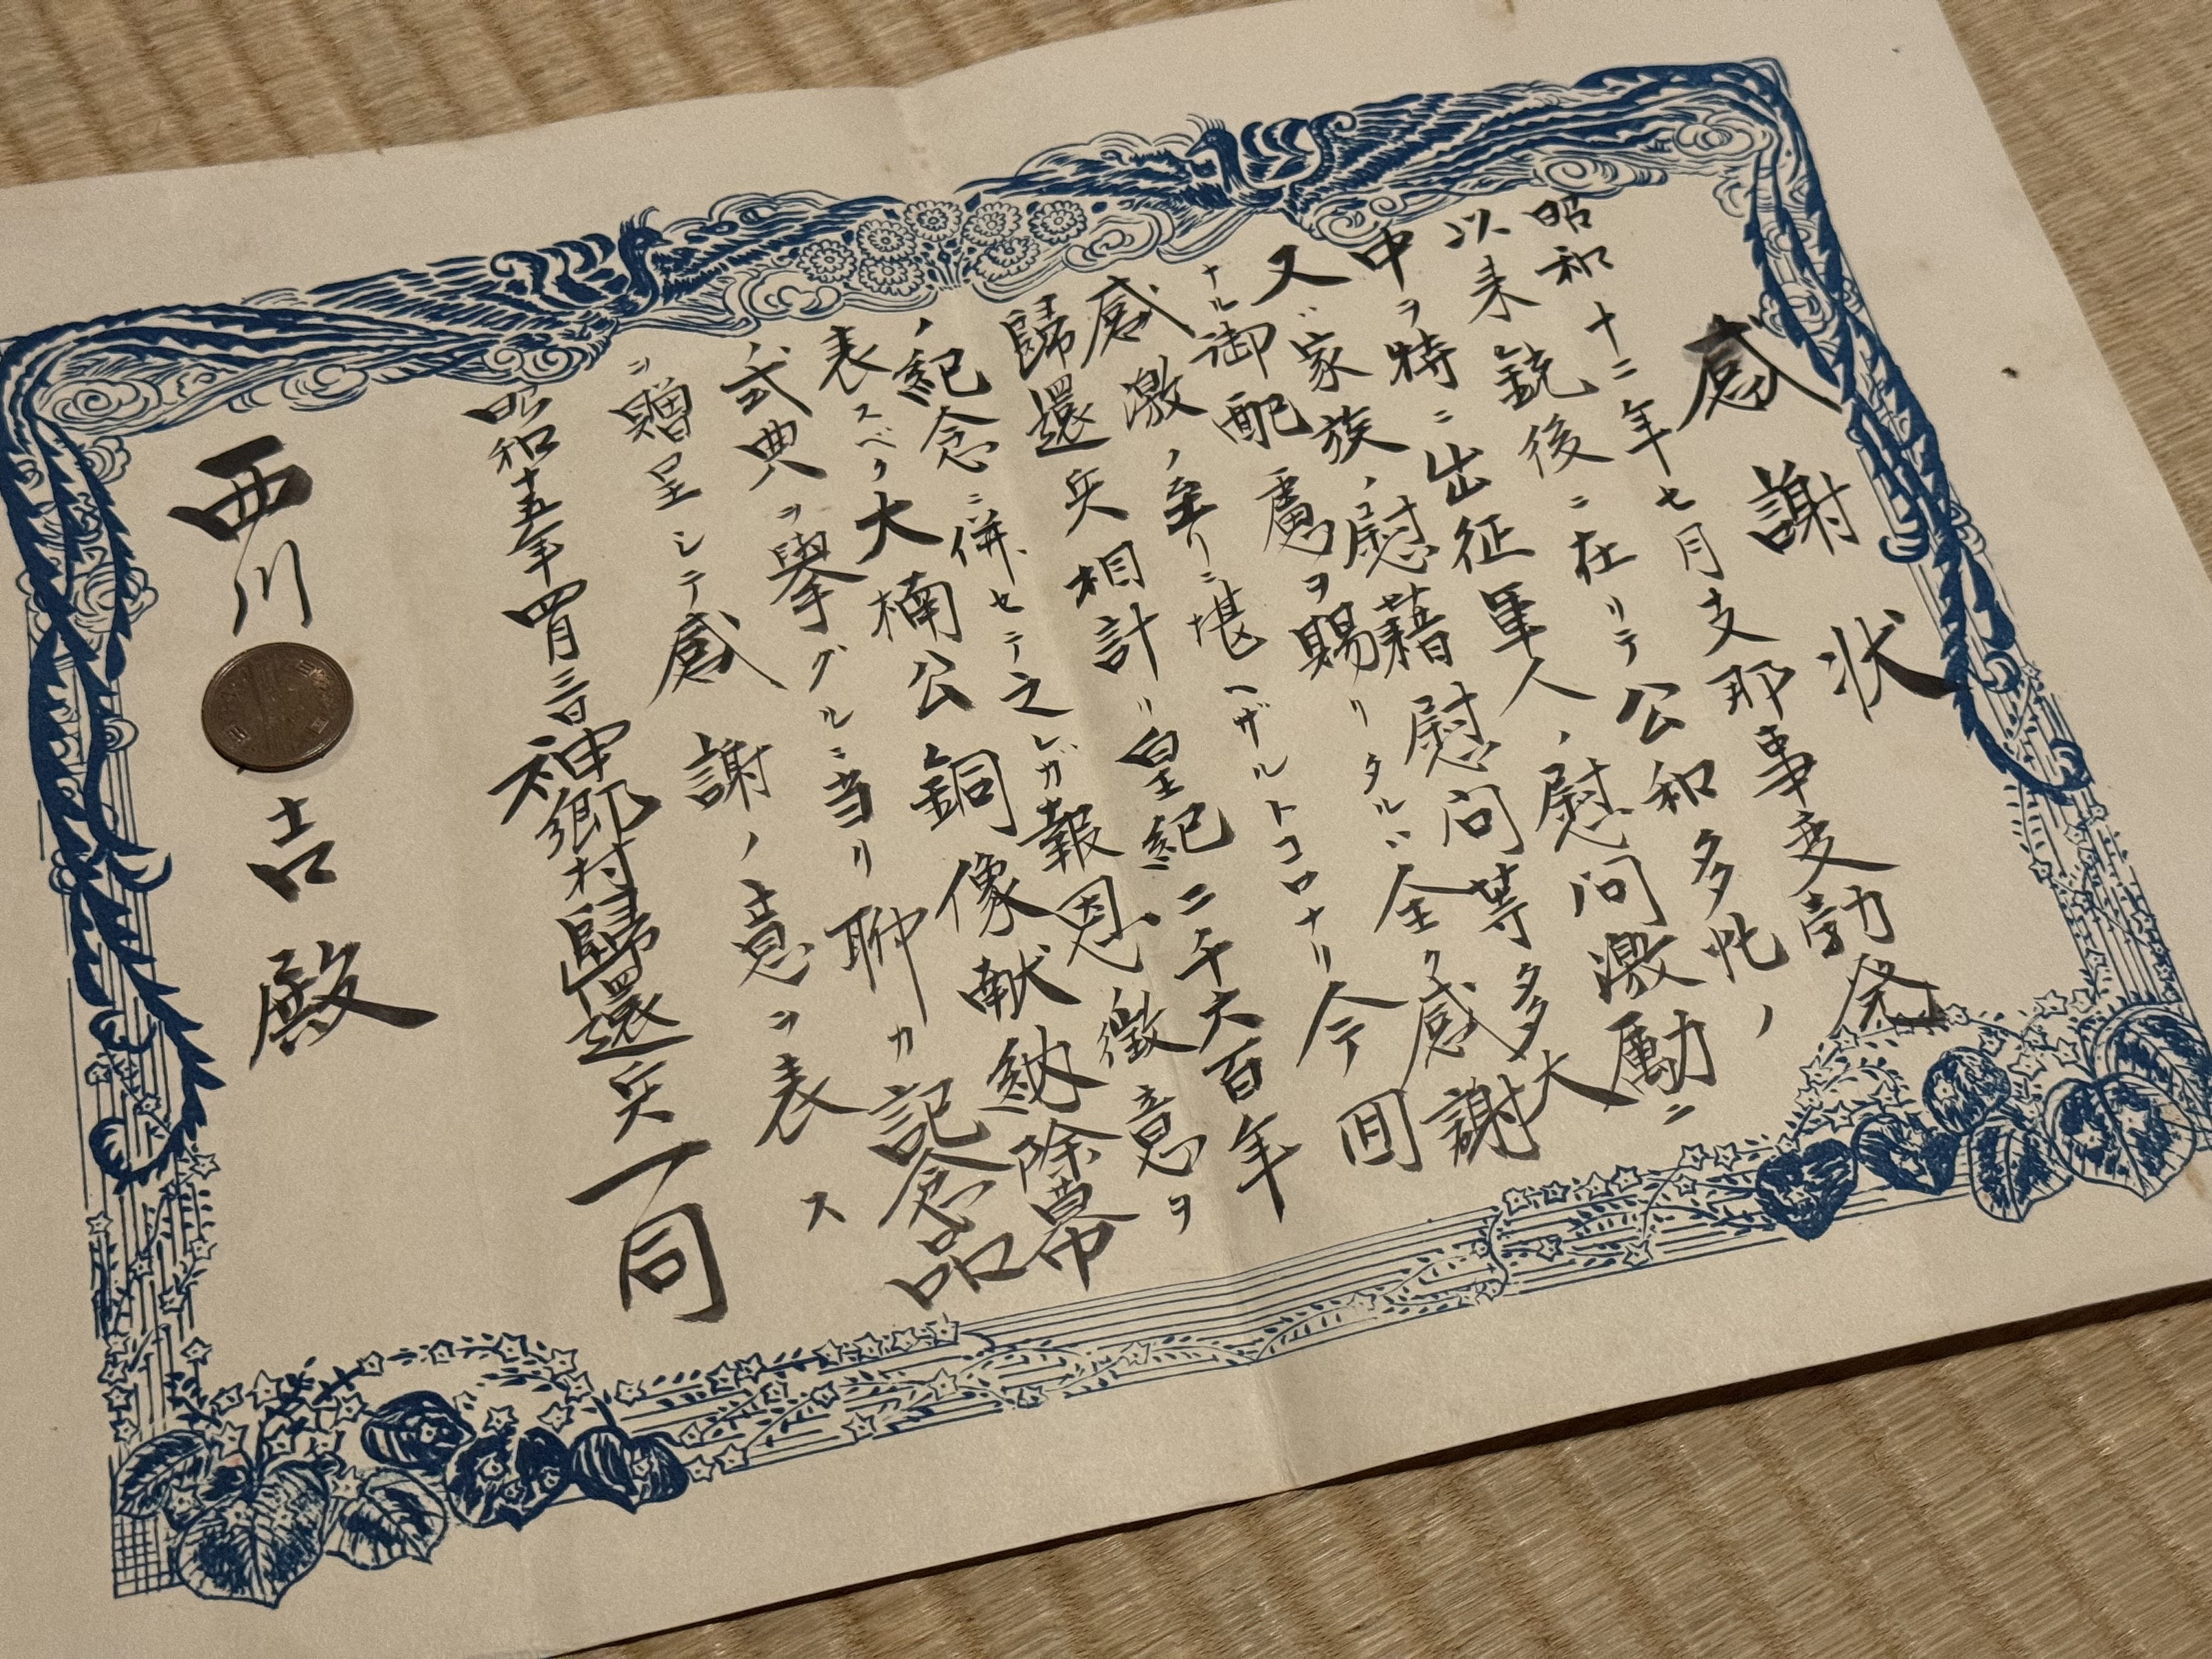 感謝状
昭和十二年七月支那事変勃発
以来銃後ニ在リテ公和多忙ノ
中ヲ特ニ出征軍人ノ慰問激励ニ
又ハ家族ノ慰藉慰問等多大
ナル御配慮ヲ賜リタルハ全ク感謝
感激ノ至リニ堪ヘザルトコロナリ今回
歸還兵相計リ皇紀二千六百年
ノ紀念ニ併セテ之レガ報恩ノ徴意ヲ
表スベク大楠公銅像献納除幕
ノ式典ヲ擧グルニ当リ聊カ記念品
ヲ贈呈シテ感謝ノ意ヲ表ス
昭和十五年四月三日
神郷村歸還兵一同
西川 吉殿